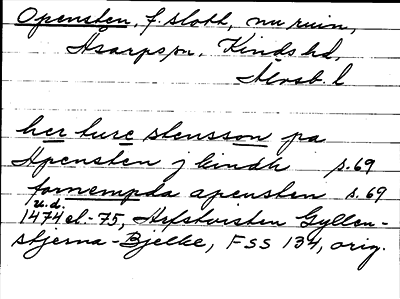 Opensten, f. slott, nu ruin,
Håcksvik sn, Kinds hd,
Älvsb. l
her ture stensson pa
Apensten j kindh s. 69
fornempda apensten s. 69
u.d.
1474 el. -75, Arvstvisten Gyllen-
stjerna-Bjelke, FSS 134, orig.